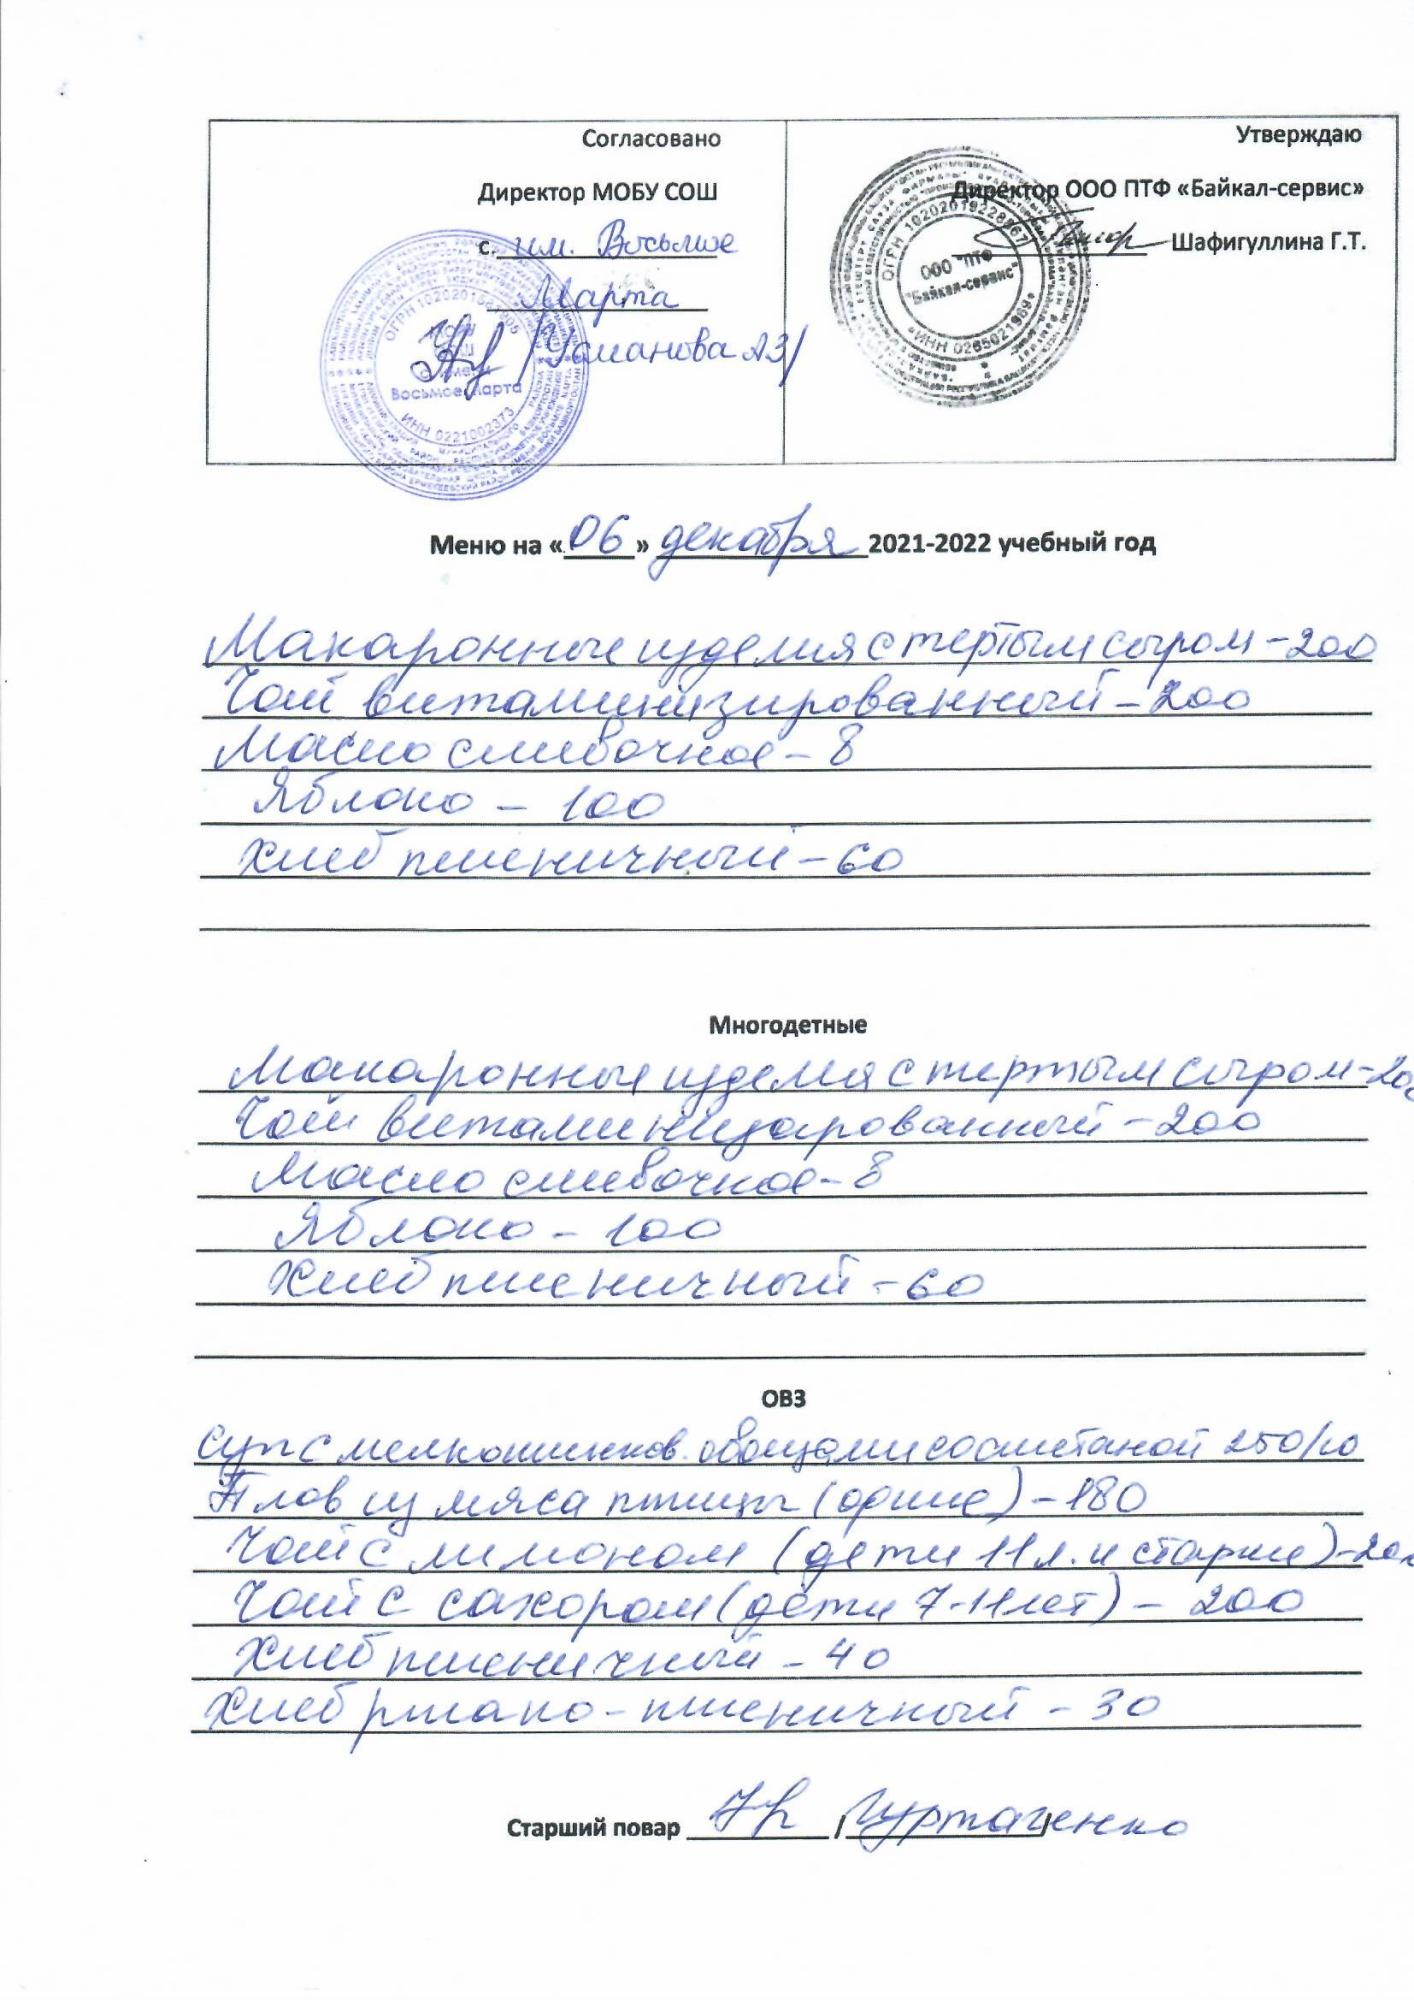 Согласовано
Директор МОБУ СОШ
с. им. Восьмое
Марта
/Усманова А З/
ОГРН 1020201
СОШ
Восьмое Марта
ИНН 0221002373
Утверждаю
Директор ООО ПТФ «Байкал-сервис»
Шафигуллина Г.Т.
ОГРН 1020201922867
ООО "ПТФ
"Байкал-сервис"
ИНН 0265021989
Меню на «06» декабря 2021-2022 учебный год
Макаронные изделия с тертым сыром - 200
Чай витаминизированный - 200
Масло сливочное - 8
Яблоко - 100
Хлеб пшеничный - 60
Многодетные
Макаронные изделия с тертым сыром - 200
Чай витаминизированный - 200
Масло сливочное - 8
Яблоко - 100
Хлеб пшеничный - 60
ОВЗ
Суп с мелкошинков. овощами со сметаной 250/10
Плов из мяса птицы (филе) - 180
Чай с лимоном (дети 11 л. и старше) - 200
Чай с сахором (дети 7-11 лет) - 200
Хлеб пшеничный - 40
Хлеб ржано-пшеничный - 30
Старший повар / /